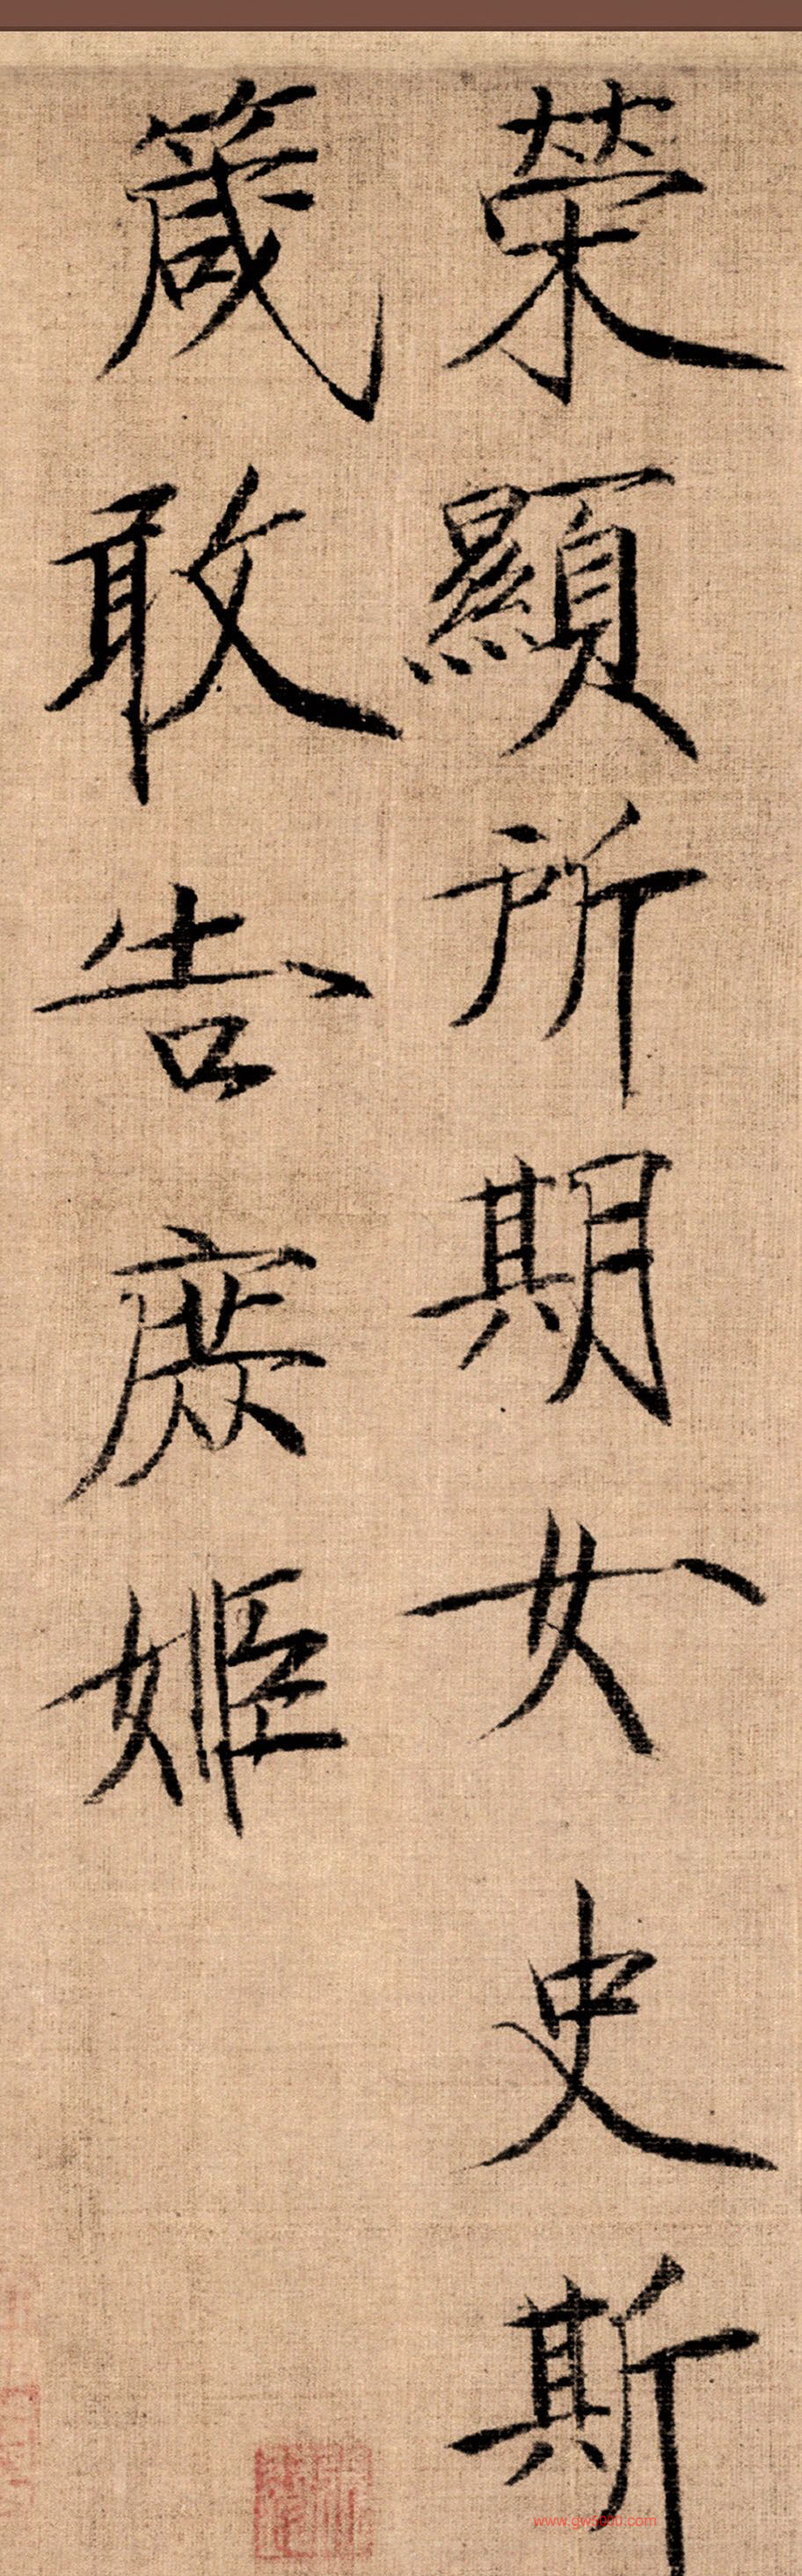 荣顯所期女史斯
箴敢告庶姬
www.gw5000.com